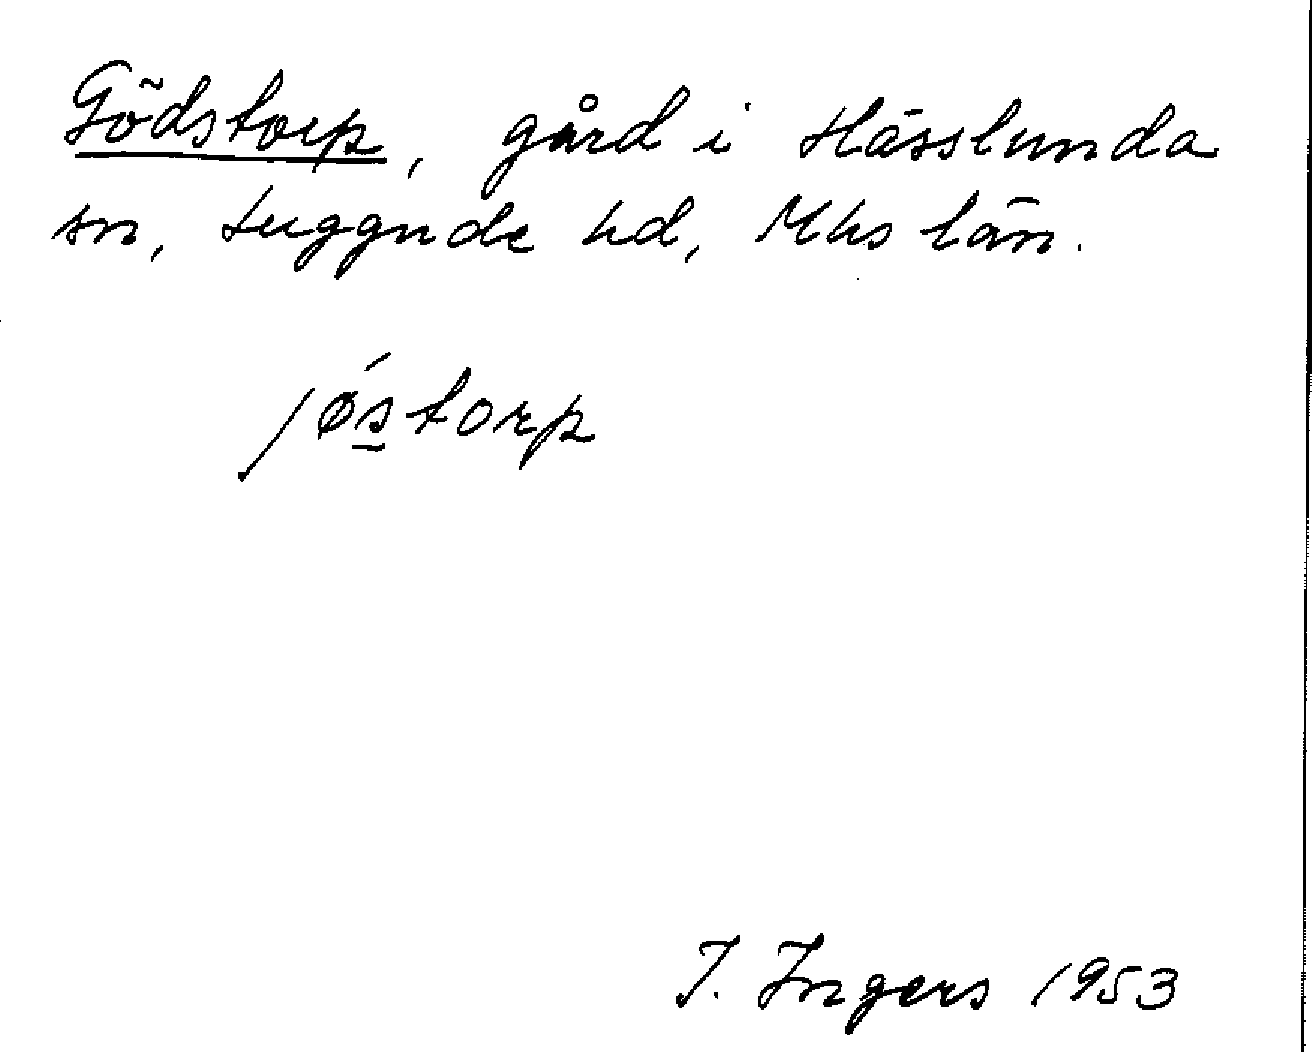 Gödstorp, gård i Hässlunda
sn, Luggude hd, Mhs län.
jǿstorp
I. Ingers 1953